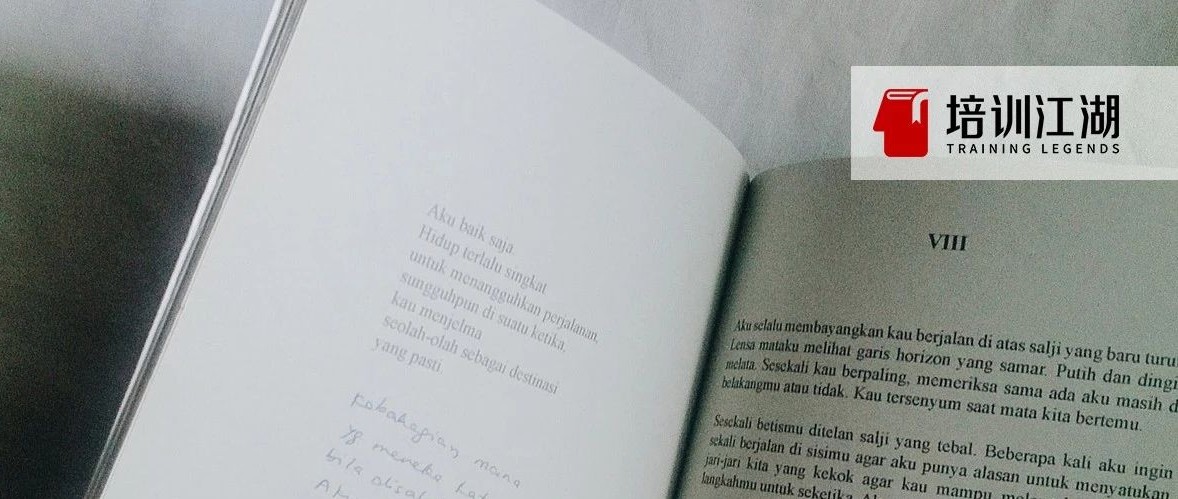 Aku baik saja
Hidup terlalu singkat
untuk menangguhkan perjalanan,
sungguhpun di suatu ketika,
kau menjelma
seolah-olah sebagai destinasi
yang pasti
kebahagian mana
yg mereka
bila
培训江湖
TRAINING LEGENDS
VIII
Aku selalu membayangkan kau berjalan di atas salji yang baru
Lensa mataku melihat garis horizon yang samar. Putih dan
melata. Sesekali kau berpaling, memeriksa sama ada aku masih
belakangmu atau tidak. Kau tersenyum saat mata kita bertemu.
Sesekali betismu ditelan salji yang tebal. Beberapa kali aku ingin
sekali berjalan di sisimu agar aku punya alasan untuk menyatukan
jari-jari kita yang kekok agar kau mampu
langkahmu untuk seketika.